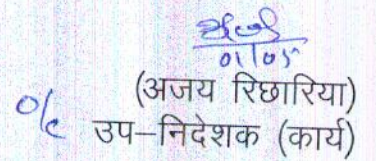 01/05
(अजय रिछारिया)
o/c उप–निदेशक (कार्य)